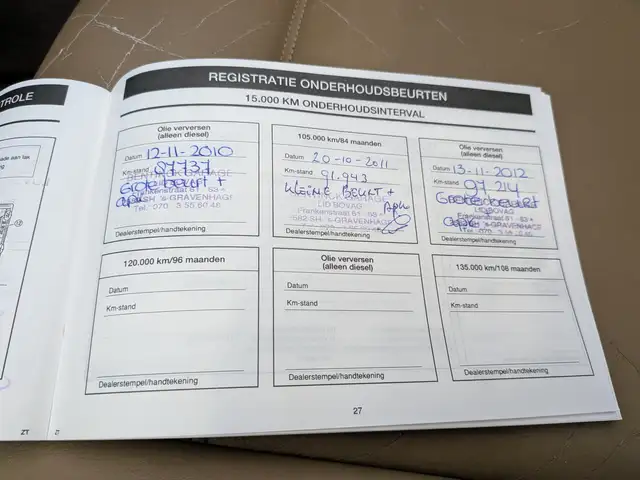 TROLE
REGISTRATIE ONDERHOUDSBEURTEN
15.000 KM ONDERHOUDSINTERVAL
Olie verversen
(alleen diesel)
Datum 12-11-2010
Km-stand 87737
Grote beurt +
apk
Frankenstraat 61 - 63
'S-GRAVENHAGE
Tel.: 070 - 3 55 60 46
Dealerstempel/handtekening
105.000 km/84 maanden
Datum 20-10-2011
Km-stand 91.943
KLEINE BEURT +
Apk
LID BOVAG
Frankenstraat 61
'S-GRAVENHAGE
Dealerstempel/handtekening
Olie verversen
(alleen diesel)
Datum 13-11-2012
Km-stand 97 214
Grote beurt
LID BOVAG
Frankenstraat 61 - 63
apk 'S-GRAVENHAGE
Dealerstempel/handtekening
120.000 km/96 maanden
Datum
Km-stand
Dealerstempel/handtekening
Olie verversen
(alleen diesel)
Datum
Km-stand
Dealerstempel/handtekening
135.000 km/108 maanden
Datum
Km-stand
Dealerstempel/handtekening
27
ZT